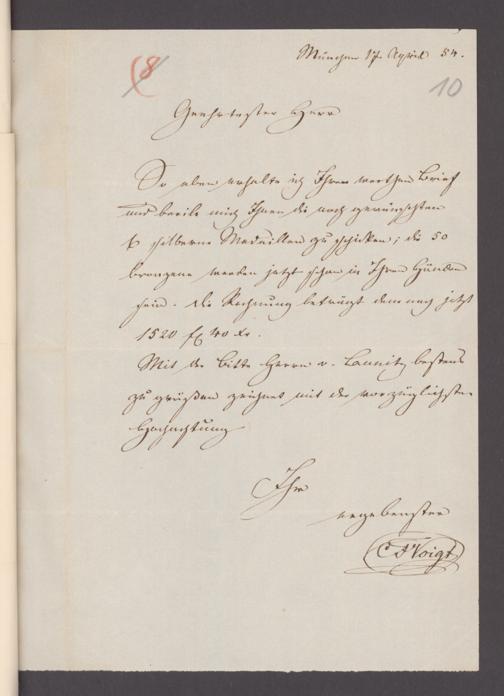 München 17 April 54.
(8
10
Geehrtester Herr
So eben erhalte ich Ihren werthen Brief
und beeile mich Ihnen die noch gewünschten
6 silberne Medaillen zu schicken; die 50
bronzene werden jetzt schon in Ihren Händen
sein. Die Rechnung beträgt demnach jetzt
1520 fl 40 Kr.
Mit der Bitte Herrn v. Launitz bestens
zu grüßen zeichnet mit der vorzüglichsten
Hochachtung
Ihr
ergebenster
C F Voigt